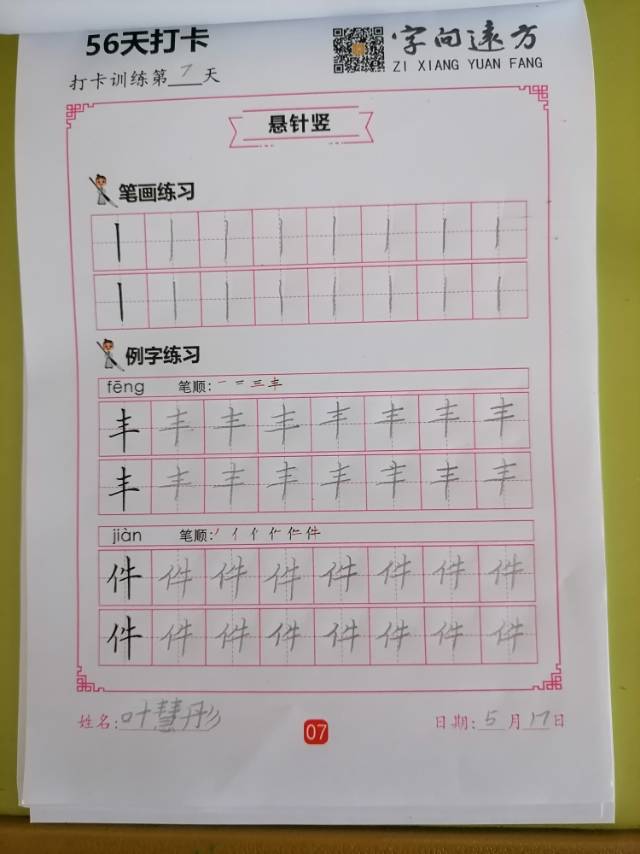 56天打卡
字向远方
ZI XIANG YUAN FANG
打卡训练第7天
悬针竖
笔画练习
丨丨丨丨丨丨丨丨
丨丨丨丨丨丨丨丨
例字练习
fēng 笔顺:一 二 三 丰
丰丰丰丰丰丰丰丰
丰丰丰丰丰丰丰丰
jiàn 笔顺:丿 亻 亻 仁 件
件件件件件件件件
件件件件件件件件
姓名:叶慧彤
07
日期:5月17日